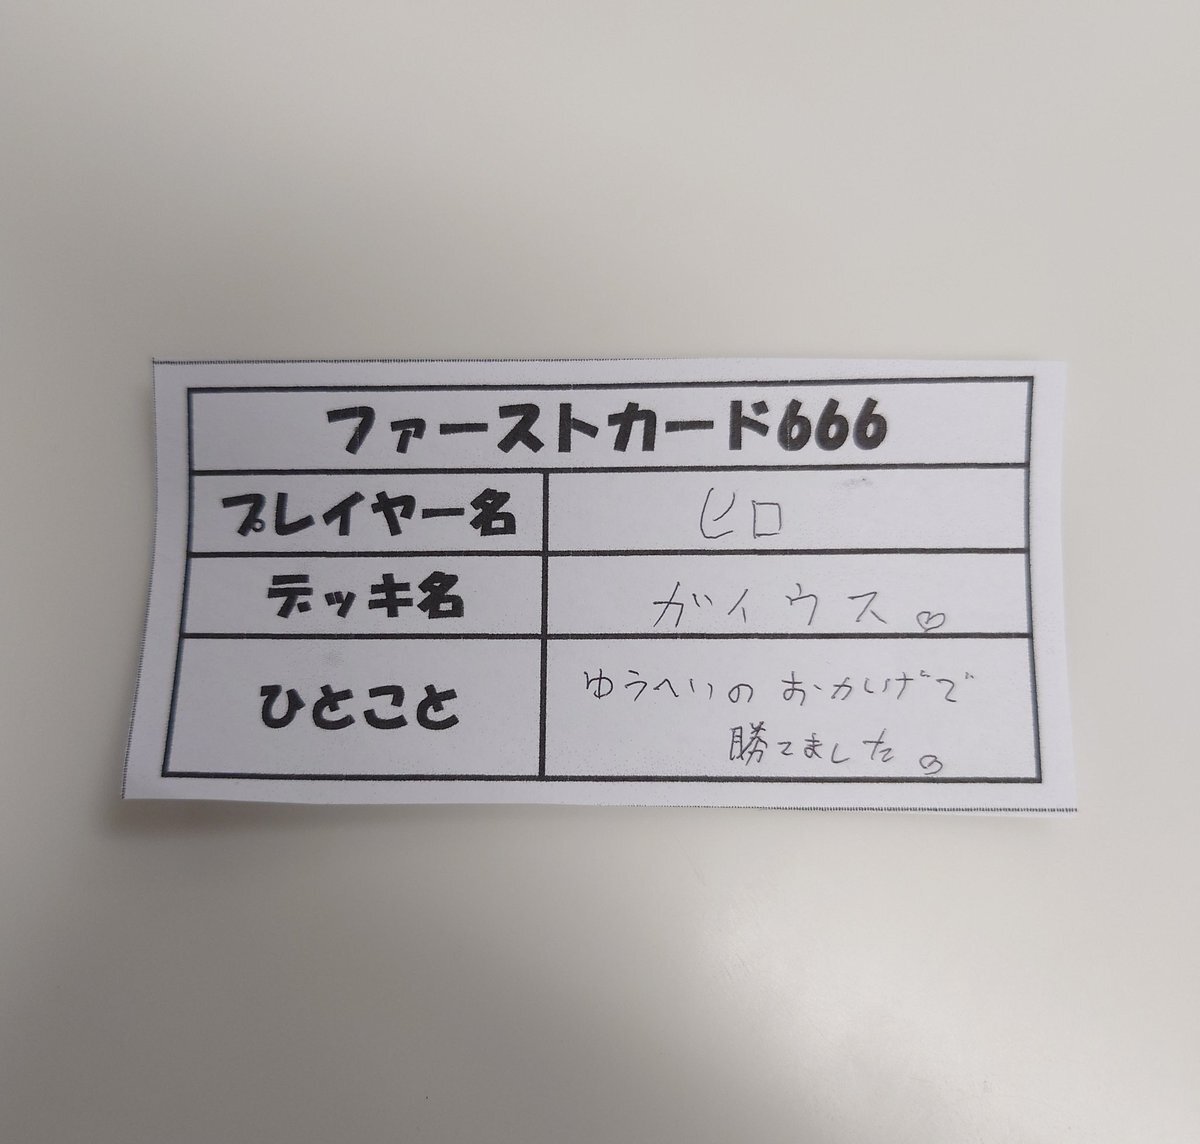 ファーストカード666
プレイヤー名 ヒロ
デッキ名 ガイウス♡
ひとこと ゆうへいのおかげで
勝てました♡